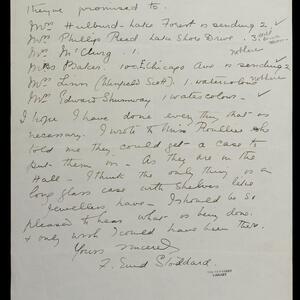 They've promised to.
Mrs Hulburd - Lake Forest is sending 2 ✓
Mrs Phillips Reed Lake Shore Drive. 3
Mrs McClurg . 1.
Mrs Baker. Chicago Ave is sending 2
Mrs Linn (Winfield Scott). 1. watercolour
Mrs Edward Shumway 1 watercolour. ✓
I hope I have done every thing that is
necessary. I wrote to Miss who
told me they could get a case to
put them in - As they are in the
Hall - I think the only thing is a
long glass case with shelves like
Jewellers have - I should be so
pleased to hear what is being done.
& only wish I could have been there.
Yours sincerely
F. Enid Stoddard.
LIBRARY